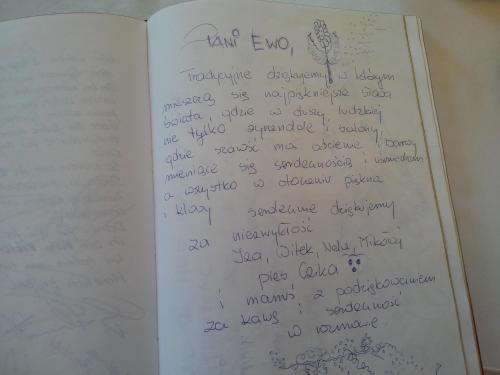 Pani Ewo,
Tradycyjne dziękujemy w którym
mieszczą się najpiękniejsze słowa
świata, gdzie w duszy ludzkiej
nie tylko żyrandole i salony,
gdzie szarość ma odcienie barwy
mieniące się serdecznością i uśmiechem
a wszystko w otoczeniu piękna
i klasy serdecznie dziękujemy
za niezwykłość
Iza, Witek, Nela, Mikołaj
pies Czika
i mama z podziękowaniem
za kawę i serdeczność
w rozmowie